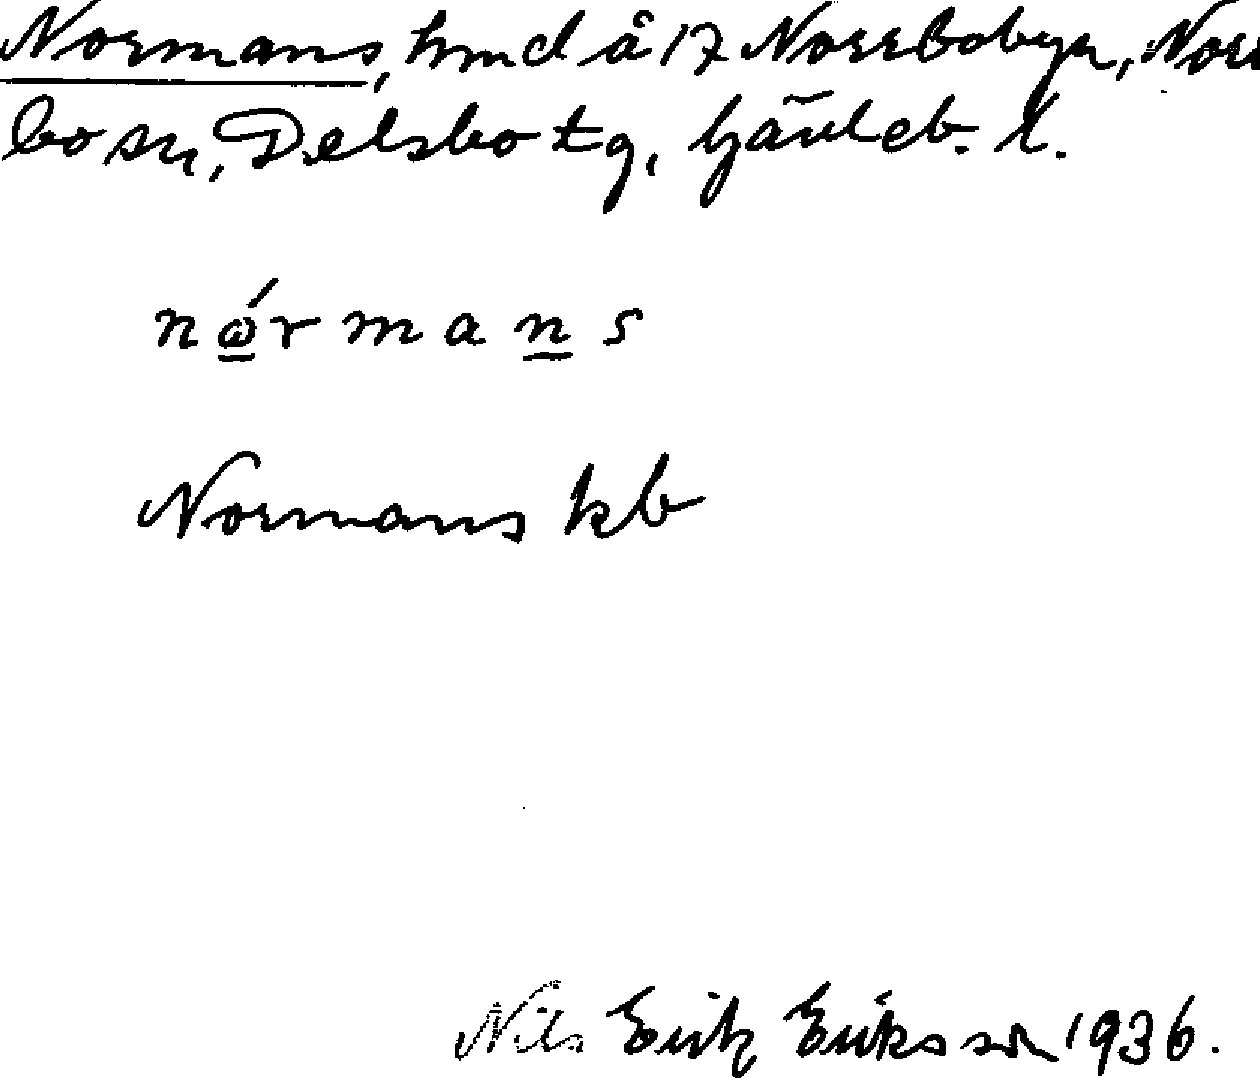 Normans, hmd å 17 Norrbobyn, Norr
bo sn, Delsbo tg, Gävleb. l.
nώ̲rman̲s
Normans kb
Nils Erik Eriksson 1936.